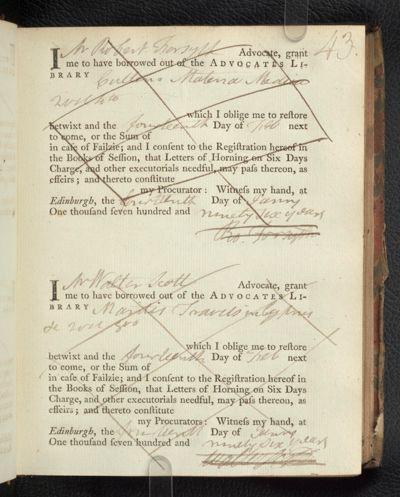 43.
I Mr Robert Forsyth Advocate, grant
me to have borrowed out of the ADVOCATES LI-
BRARY Cullens Materia Medica
2 vols 8vo
which I oblige me to reſtore
betwixt and the fourteenth Day of Feb next
to come, or the Sum of
in caſe of Failzie; and I conſent to the Regiſtration hereof in
the Books of Seſſion, that Letters of Horning on Six Days
Charge, and other executorials needful, may paſs thereon, as
effeirs; and thereto conſtitute
my Procurator: Witneſs my hand, at
Edinburgh, the fourteenth Day of Janry
One thouſand ſeven hundred and ninety six years
I Mr Walter Scott Advocate, grant
me to have borrowed out of the ADVOCATES LI-
BRARY Travels
2 vols 8vo
which I oblige me to reſtore
betwixt and the fourteenth Day of Feb next
to come, or the Sum of
in caſe of Failzie; and I conſent to the Regiſtration hereof in
the Books of Seſſion, that Letters of Horning on Six Days
Charge, and other executorials needful, may paſs thereon, as
effeirs; and thereto conſtitute
my Procurator: Witneſs my hand, at
Edinburgh, the fourteenth Day of Janry
One thouſand ſeven hundred and ninety six years